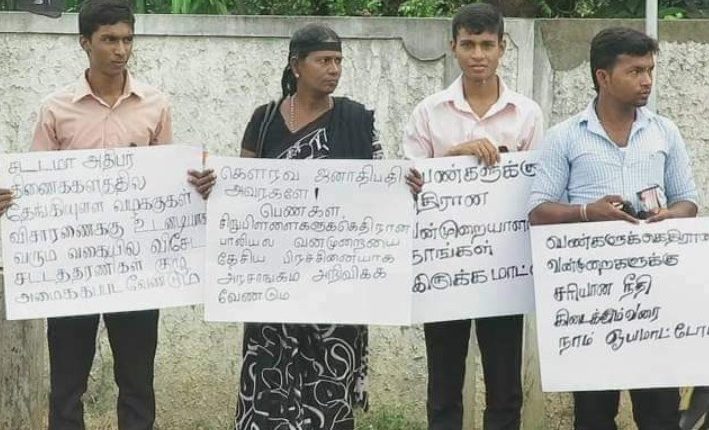 சட்டமா அதிபர்
திணைக்களத்தில்
தேங்கியுள்ள வழக்குகள்
விசாரணைக்கு உடனடியாக
வரும் வகையில் விசேட
சட்டத்தரணிகள் குழு
அமைக்கப்பட வேண்டும்
கௌரவ ஜனாதிபதி
அவர்களே!
பெண்கள்
சிறுபிள்ளைகளுக்கெதிரான
பாலியல் வன்முறையை
தேசிய பிரச்சினையாக
அரசாங்கம் அறிவிக்க
வேண்டும்
பெண்களுக்கு
திரான
வன்முறையான
நாங்கள்
கிருக்க மாட்
பெண்களுக்கெதிரான
வன்முறைகளுக்கு
சரியான நீதி
கிடைக்கும்வரை
நாம் ஓயமாட்டோ